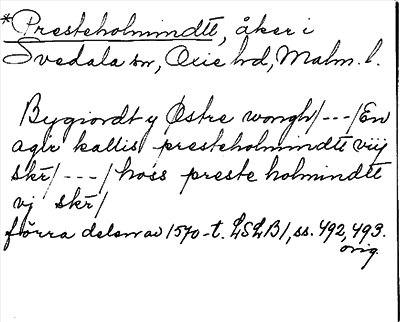 *Presteholmindtt, åker i
Svedala sn, Oxie hd, Malm. l.
Bygiordt y Østre wongh/---/En
agir kallis presteholmindtt viij
skr/---/hoss preste holmindtt
vj skr/
förra delen av 1570-t. LSLB1, ss. 492, 493.
orig.